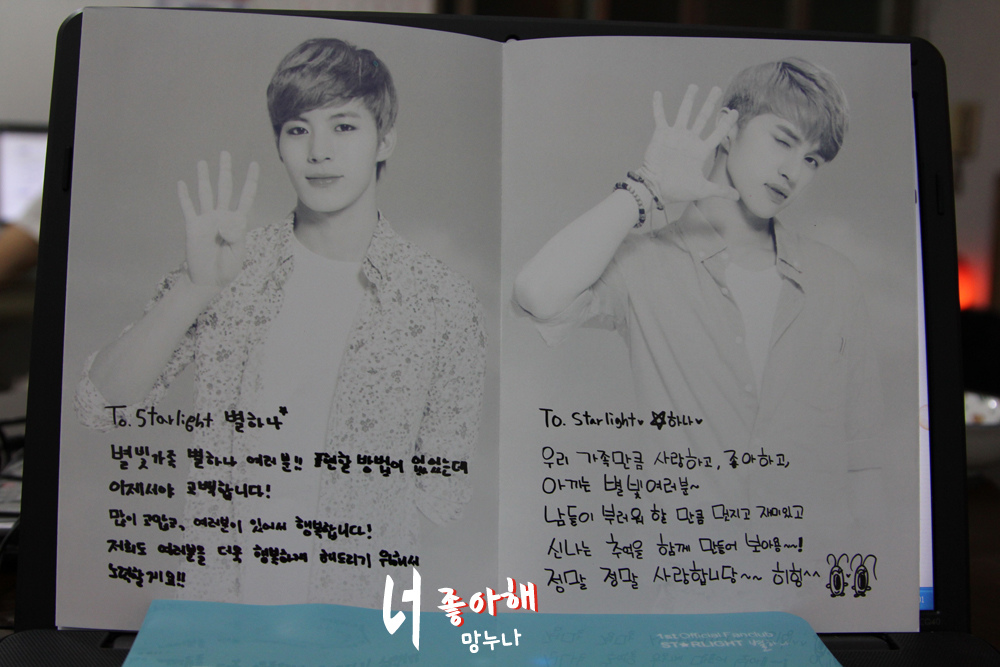 To. Starlight 별하나*
별빛가족 별하나 여러분!! 표현할 방법이 없었는데
이제서야 고백합니다!
많이 고맙고, 여러분이 있어서 행복합니다!
저희도 여러분을 더욱 행복하게 해드리기 위해서
노력할게요!!
To. Starlight♥ ☆하나♥
우리 가족만큼 사랑하고, 좋아하고,
아끼는 별빛여러분~
남들이 부러워 할 만큼 멋지고 재미있고
신나는 추억을 함께 만들어 보아용~~!
정말 정말 사랑합니당~~ 히힝^^
너 좋아해
망누나
1st Official Fanclub
ST★RLIGHT